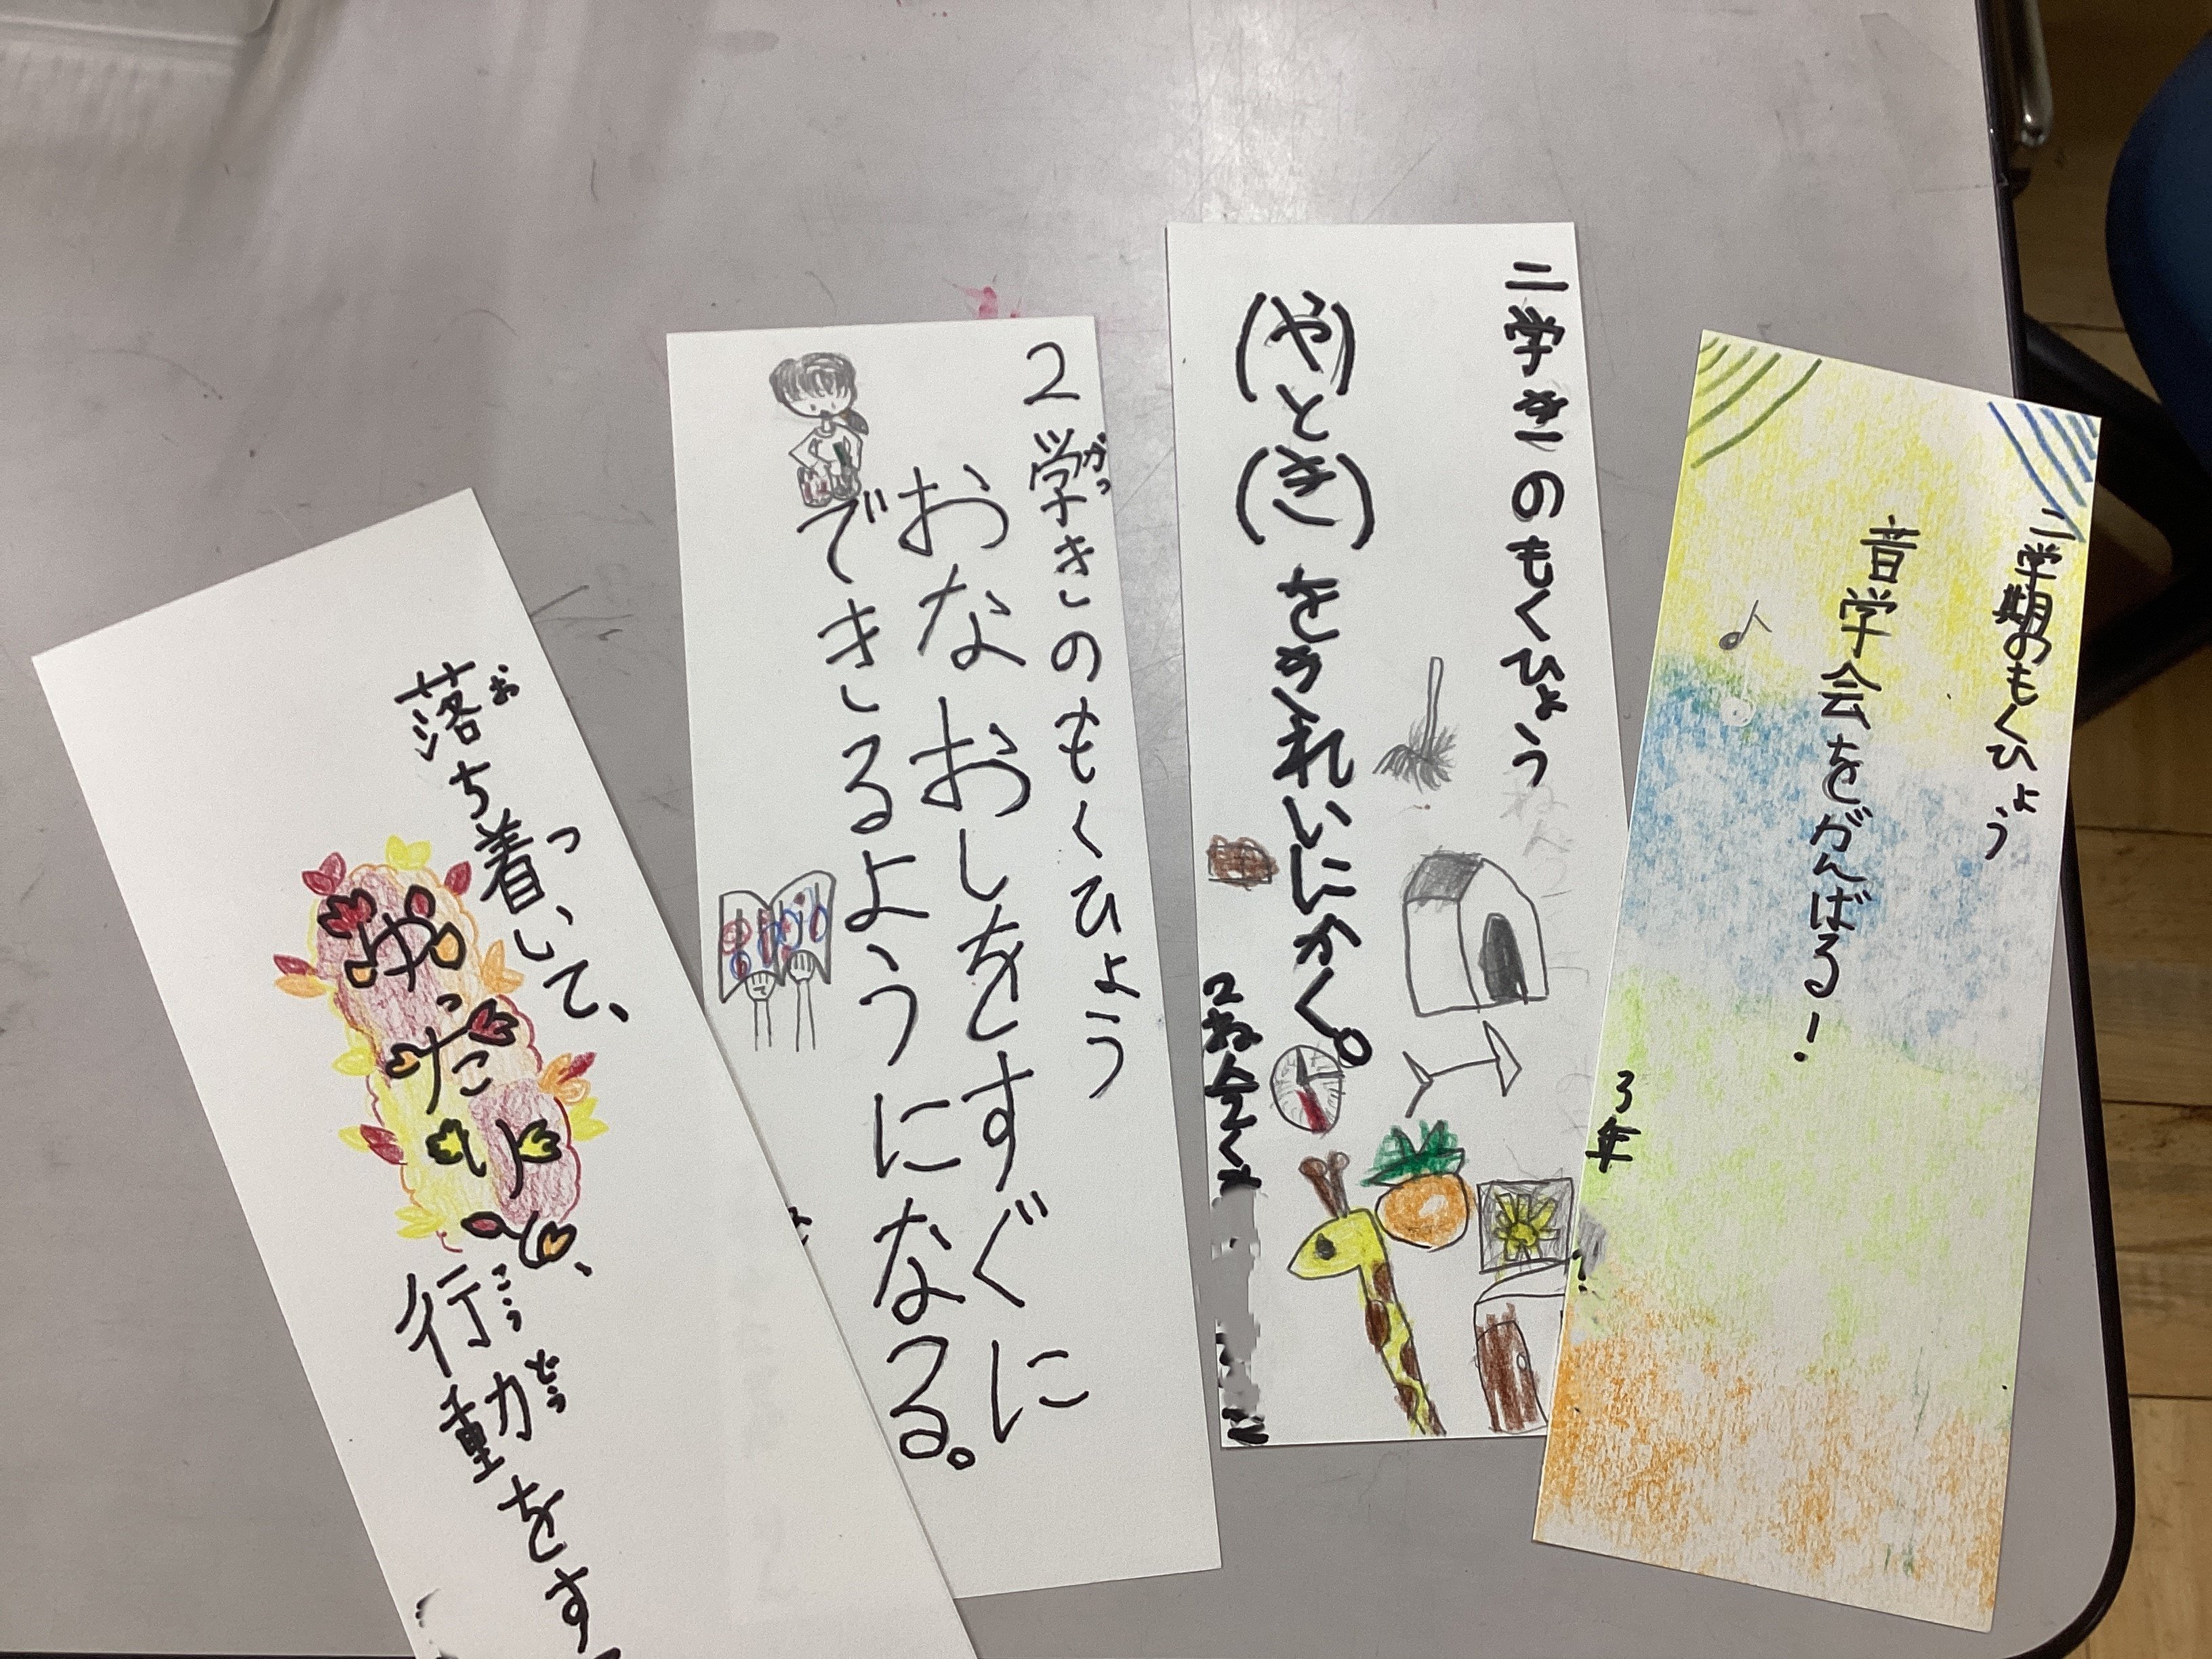 二学期のもくひょう
音学会をがんばる!
3年
二学きのもくひょう
(や)と(き)をきれいにかく。
2学きのもくひょう
がっ
おなおしをすぐに
できるようになる。
落ち着いて、
お
つ
ゆったりと、
行動をす
こう
どう